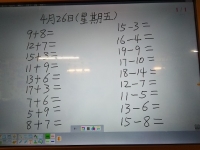 4月26日(星期五)
9+8=
12+7=
15+3=
11+9=
13+6=
17+3=
7+6=
5+9=
8+7=
15-3=
16-4=
19-9=
17-10=
18-14=
12-7=
11-5=
13-6=
15-8=